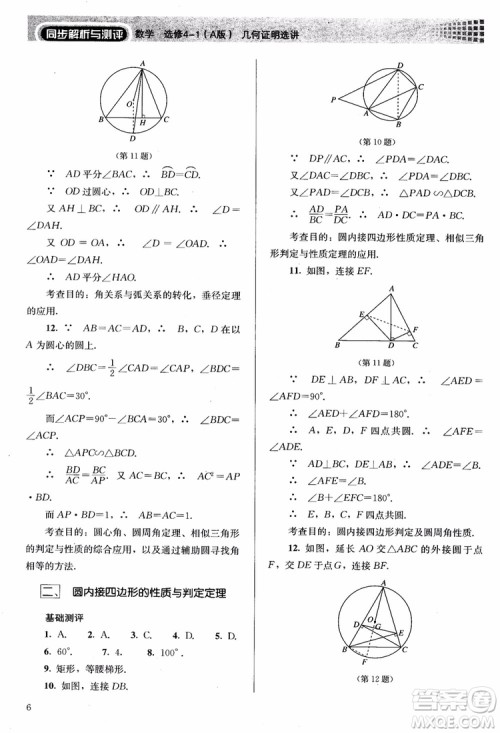 同步解析与测评 数学 选修4-1（A版） 几何证明选讲
A
O
B
H
C
D
（第 11 题）
∵ AD 平分∠BAC，∴ BD=CD.
∵ OD 过圆心，∴ OD⊥BC.
又 AH⊥BC，∴ OD∥AH. ∴ ∠D=
∠DAH.
又 OA=OD，∴ ∠DAO=∠D=
∠DAH.
∴ AD 平分∠HAO.
考查目的：角关系与弧关系的转化，垂径定理
的应用.
12. ∵ AB=AC=AD，∴ B，C，D 在以
A 为圆心的圆上.
∴ ∠DBC=1/2∠CAD=∠BCP，∠BDC=
1/2∠BAC=30°.
而∠APC=∠DBC+∠BCP，∴ ∠BDC=
∠ACP.
∴ △APC∽△BCD.
∴ BD/AC=BC/AP. ∴ BC·AC=AP
·BD.
而 AP=AC，∴ BC=BD.
考查目的：圆心角、圆周角定理，相似三角形
的判定与性质的综合应用，以及利用圆解决角相
等的方法.
二、 圆内接四边形的性质与判定定理
基础测评
1. A. 2. A. 3. D. 4. C. 5. D.
6. 60°. 7. 4. 8. 100°.
9. 矩形，等腰梯形.
10. 如图，连接 DB.
6
D
P
C
A
B
（第 10 题）
∵ DP∥AC，∴ ∠PDA=∠DAC.
又∵ ∠DAC=∠DBC，∴ ∠PDA=∠DBC.
又∵ ∠DAP=∠DCB，∴ △PAD∽△DCB.
∴ AD/BC=AP/DC. ∴ AD·DC=AP·BC.
考查目的：圆内接四边形性质定理、相似三角
形判定与性质定理的应用.
11. 如图，连接 EF.
A
E
F
B
D
C
（第 11 题）
∵ DE⊥AB，DF⊥AC，∴ ∠AED+
∠AFD=180°.
∴ A，E，D，F 四点共圆.
∴ ∠AEF=∠ADF.
又∵ AD⊥BC，∴ ∠ADF=∠C.
∴ ∠AEF=∠C.
∴ ∠BEF+∠C=180°.
∴ B，E，F，C 四点共圆.
考查目的：圆内接四边形判定及圆周角定理.
12. 如图，延长 AO 交△ABC 的外接圆于点
F，交 DE 于点 G，连接 BF.
A
D
G
E
O
B
C
F
（第 12 题）